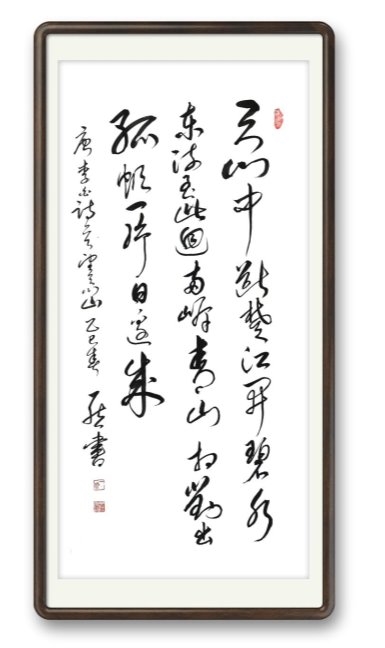 天门中断楚江开碧水
东流至此迴两岸青山相對出
孤帆一片日邊来
唐李白詩望天门山乙巳春
書